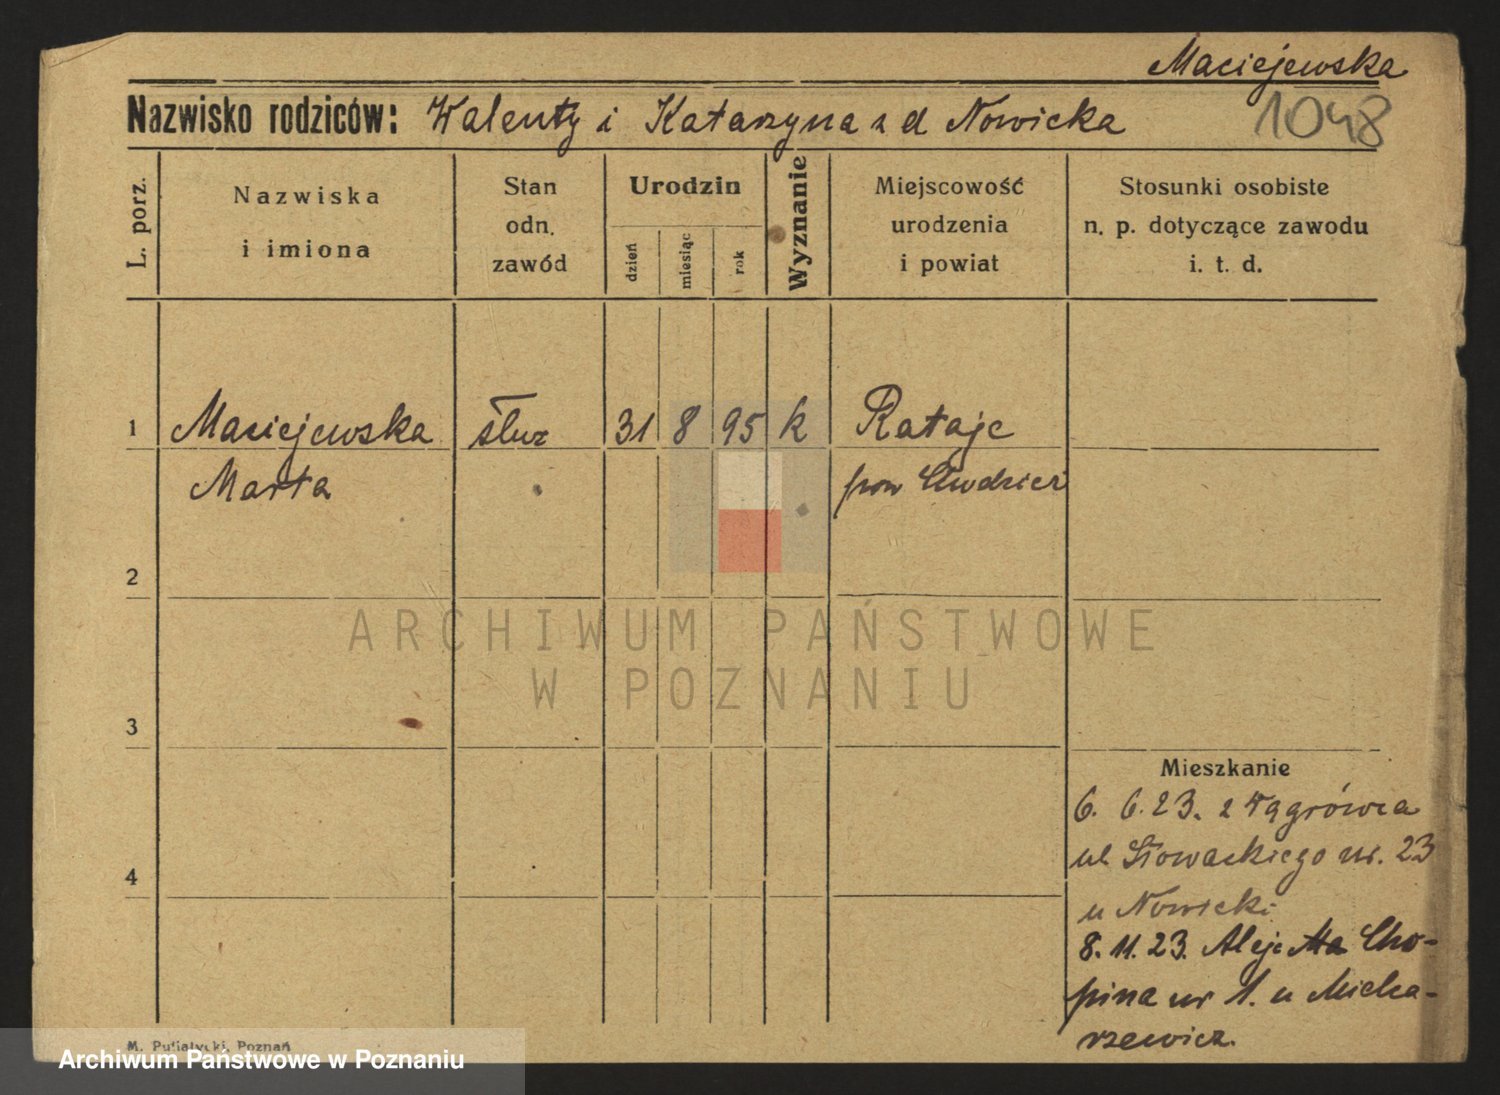 Maciejewska
Nazwisko rodziców: Walenty i Katarzyna z d Nowicka
1048
L. porz.
Nazwiska
i imiona
Stan
odn.
zawód
Urodzin
dzień
miesiąc
rok
Wyznanie
Miejscowość
urodzenia
i powiat
Stosunki osobiste
n. p. dotyczące zawodu
i. t. d.
1 Maciejewska służ 31 8 95 k Rataje
Marta pow Chodzież
2
ARCHIWUM PAŃSTWOWE
W POZNANIU
3
Mieszkanie
6. 6. 23. z Wągrówca
ul Słowackiego nr. 23
4
u Nowicki
8. 11. 23. Aleje Cho-
pina nr 1. u
rzewicz
M. Putiatycki, Poznań
Archiwum Państwowe w Poznaniu